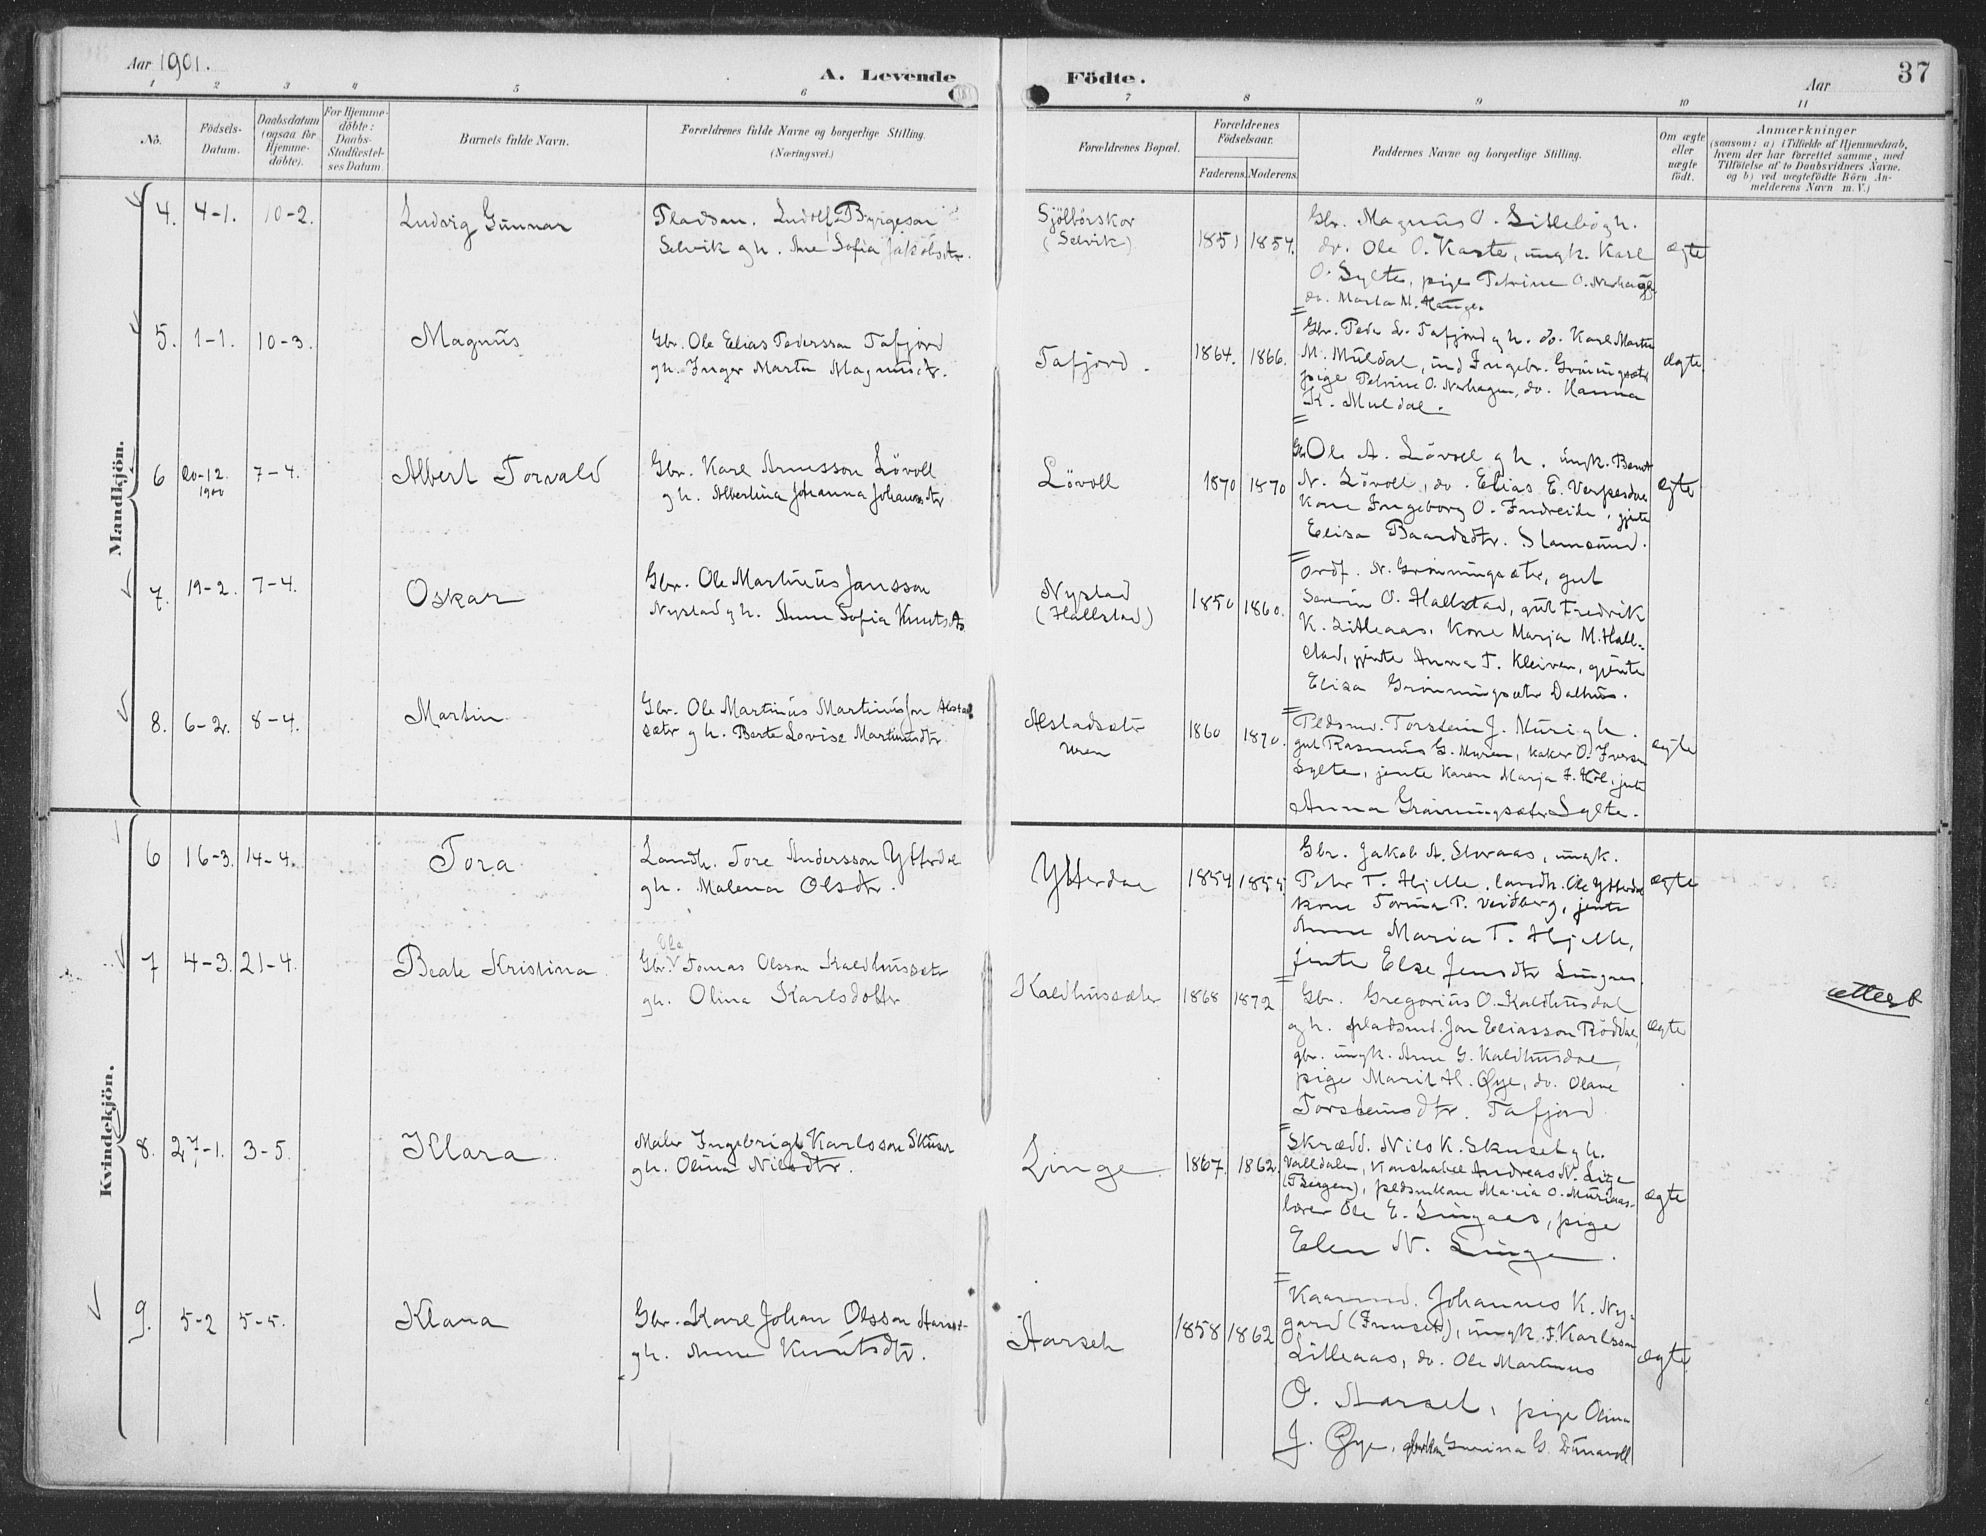 Aar 1901.
A. Levende
Födte.
Aar
37
1 2 3 4 5 6 7 8 9 10 11
No.
Födsels-
Datum.
Daabsdatum
(ogsaa for
Hjemme-
döbte).
For Hjemme-
döbte:
Daabs-
Stadfæstel-
ses Datum.
Barnets fulde Navn.
Forældrenes fulde Navne og borgerlige Stilling.
(Næringsvei.)
Forældrenes Bopæl.
Forældrenes
Födselsaar.
Faderens. Moderens.
Faddernes Navne og borgerlige Stilling.
Om ægte
eller
uægte
födt.
Anmærkninger
(saasom: a) i Tilfælde af Hjemmedaab,
hvem der har forrettet samme, med
Tilföielse af to Daabsvidners Navne,
og b) ved uægtefödte Börn An-
melderens Navn m. V.)
Mandkjön.
4. 4-1. 10-2. Ludvig Gunnar
Pladsm. Ludolf Byrgeson
Selvik gh. Ane Sofia Jakobsdtr.
Sjölbörskor
(Selvik)
1851 1854.
Gbr. Magnus O. Sittebö gh.
do. Ole O. Kaste, ungk. Karl
O. Sylte, pige Petrine O. Nerhagen
do. Marta M. Hauge.
ægte
5. 1-1. 10-3. Magnus
Gbr. Ole Elias Pedersson Tafjord
gh. Inger Marta Magnusdtr.
Tafjord.
1864. 1866.
Gbr. Peder L. Tafjord gh. do. Karl Martin
M. Muldal, ind Ingebr. Gröningsæter
pige Petrine O. Nerhagen, do. Hanna
K. Muldal.
ægte.
6 20-12. 1900 7-4. Albert Torvald
Gbr. Karl Arnesson Lövoll
gh. Albertina Johanna Johansdtr
Lövoll
1870 1870
Gbr Ole A. Lövoll gh. ungk. Bernt
N. Lövoll, do. Elias E. Verpesdal
Kone Ingeborg O. Indreide, gjente
Elisa Baardsdtr. Stamsund.
ægte
7. 19-2. 7-4. Oskar
Gbr. Ole Martinus Jansson
Nystad gh. Anne Sofia Knutsdtr
Nystad
(Hallstad)
1850 1860.
Ordf. N. Gröningsæter, gut
Severin O. Hallstad, gut Fredrik
K. Litleaas, Kone Marja M. Hall-
stad, gjente Anna T. Kleiven, gjente
Elisa Gröningsæter Dalhus.
8. 6-2. 8-4. Martin
Gbr. Ole Martinus Martinusson Alstad
sætr gh. Berte Lovise Martinusdtr
Alstadsætr
Uren
1860 1870.
Pldsmd. Torstein J. Muri gh.
gut Rasmus G. Myren, O. Iversen
Sylte, jente Karen Marja, jente
Anna Gröningsæter Sylte.
ægte
Kvindekjön.
6 16-3. 14-4. Tora
Landh. Tore Andersson Ytterdal
gh. Malena Olsdtr.
Ytterdal
1854 1855.
Gbr. Jakob A. Storaas, ungk.
Petr T. Hjelle, landh. Ole Ytterdal
kone Torina P. Veidberg, jente
Anne Maria T. Hjelle,
jente Else Jensdtr Lingaas.
ægte
7 4-3. 21-4. Beate Kristina
Ole
Gbr. Tomas Olsson Kaldhussætr
gh. Olina Karlsdotter
Kaldhussæter
1868 1872
Gbr. Gregorius O. Kaldhusdal
gh. pladsmd. Jon Eliasson Röddal,
gbr. ungk. Arne G. Kaldhusdal,
pige Marit H. Øye, do. Olave
Torsteinsdtr. Tafjord
ægte
attest
8. 27-1. 3-5. Klara
Maler Ingebrigt Karlsson Skuset
gh. Olina Nilsdtr.
Linge
1867. 1862.
Skrædd. Nils K. Skuset gh.
Valldalen, Konstabel Andreas N. Linge
(Bergen), pldsmkone Maria O. Muriaas-
lærer Ole E. Lingaas, pige
Elen N. Linge.
ægte
9. 5-2 5-5. Klara
Gbr. Karl Johan Olsson Aarset-
gh. Anne Knutsdtr.
Aarseth
1858 1862
Kaarmd. Johannes K. Ny-
gard (Innset), ungk. I. Karlsson
Litleaas, do. Ole Martinus
O. Aarset, pige Olina
J. Øye, Gurina G. Dunavoll
ægte